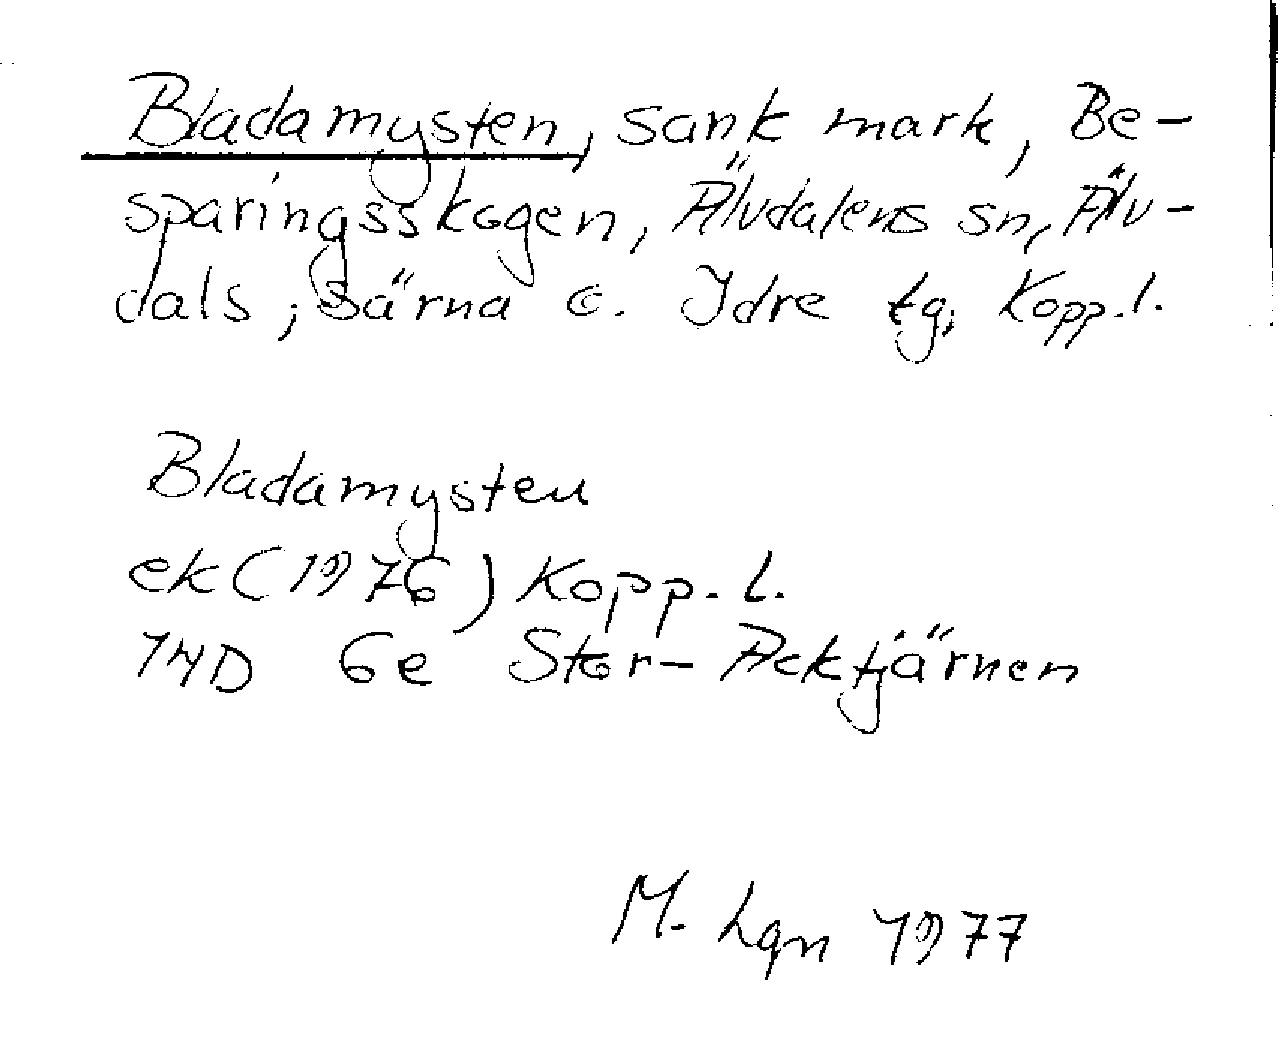 Bladamysten, sank mark, Be-
sparingsskogen, Älvdalens sn, Älv-
dals, Särna o. Idre tg, Kopp.l.
Bladamysten
ek (1976) Kopp. l.
14D 6e Stor-Acktjärnen
M. Lgn 1977